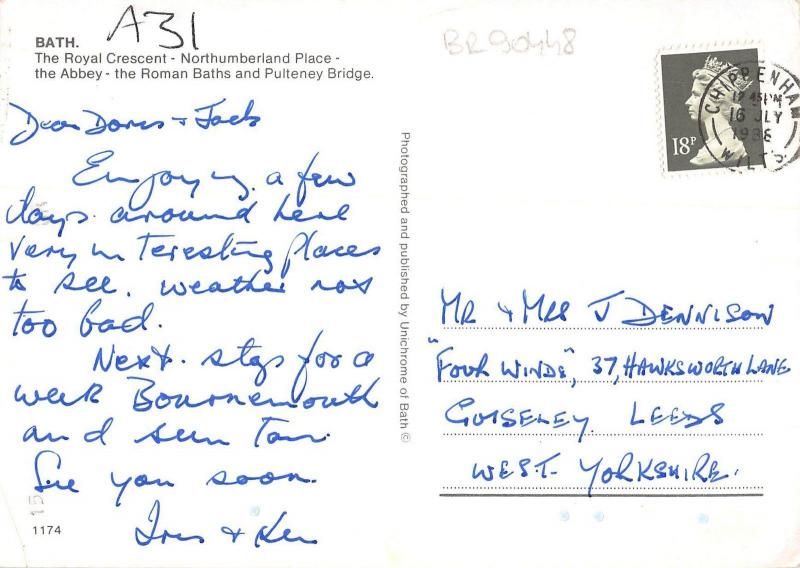 A31
BR90448
BATH.
The Royal Crescent - Northumberland Place -
the Abbey - the Roman Baths and Pulteney Bridge.
18P
CHIPPENHAM
12 45PM
16 JLY
1986
WILTS
Dear Doris + Jack
Enjoying a few
days around here
very interesting places
to see. weather not
too bad.
Next stop for a
week Bournemouth
and sun Tan.
See you soon.
Iris + Ken
Photographed and published by Unichrome of Bath ©
MR + MRS J DENNISON
"FOUR WINDS", 37, HAWKSWORTH LANE
GUISELEY LEEDS
WEST YORKSHIRE.
15
1174